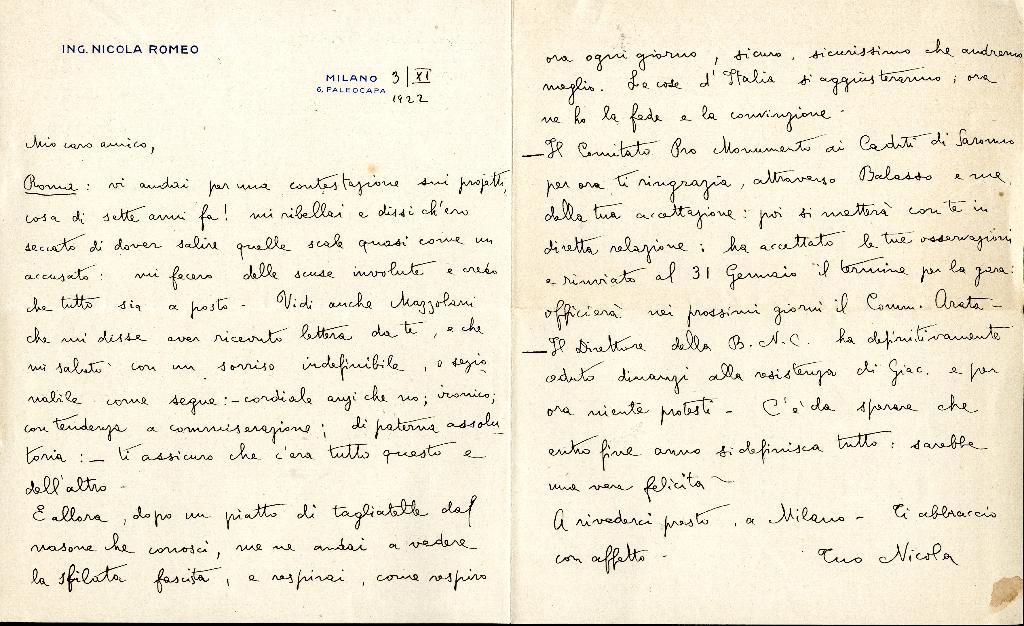 ING. NICOLA ROMEO
MILANO 3 | XI
6, PALEOCAPA 1922
Mio caro amico,
Roma: vi andai per una contestazione sui progetti,
cosa di sette anni fa! mi ribellai e dissi ch'ero
seccato di dover salire quelle scale quasi come un
accusato: mi fecero delle scuse involute e credo
che tutto sia a posto - Vidi anche Mazzolani
che mi disse aver ricevuto lettera da te, e che
mi salutò con un sorriso indefinibile, o sezio
nabile come segue: - cordiale anzi che no; ironico;
con tendenza a commiserazione; di paterna assolu
toria: - ti assicuro che c'era tutto questo e
dell'altro -
E allora, dopo un piatto di tagliatelle dal
nasone che conosci, me ne andai a vedere
la sfilata fascista, e respirai, come respiro
ora ogni giorno, sicuro, sicurissimo che andremo
meglio. Le cose d'Italia si aggiusteranno; ora
ne ho la fede e la convinzione -
- Il Comitato Pro Monumento ai Caduti di Saronno
per ora ti ringrazia, attraverso Balasso e me,
della tua accettazione: poi si metterà con te in
diretta relazione; ha accettato le tue osservazioni
e rinviato al 31 Gennaio il termine per la gara:
officierà nei prossimi giorni il Comm. Arata -
- Il Direttore della B.N.C. ha definitivamente
ceduto dinanzi alla resistenza di Giac. e per
ora niente protesti - C'è da sperare che
entro fine anno si definisca tutto: sarebbe
una vera felicità -
A rivederci presto, a Milano - Ti abbraccio
con affetto - Tuo Nicola